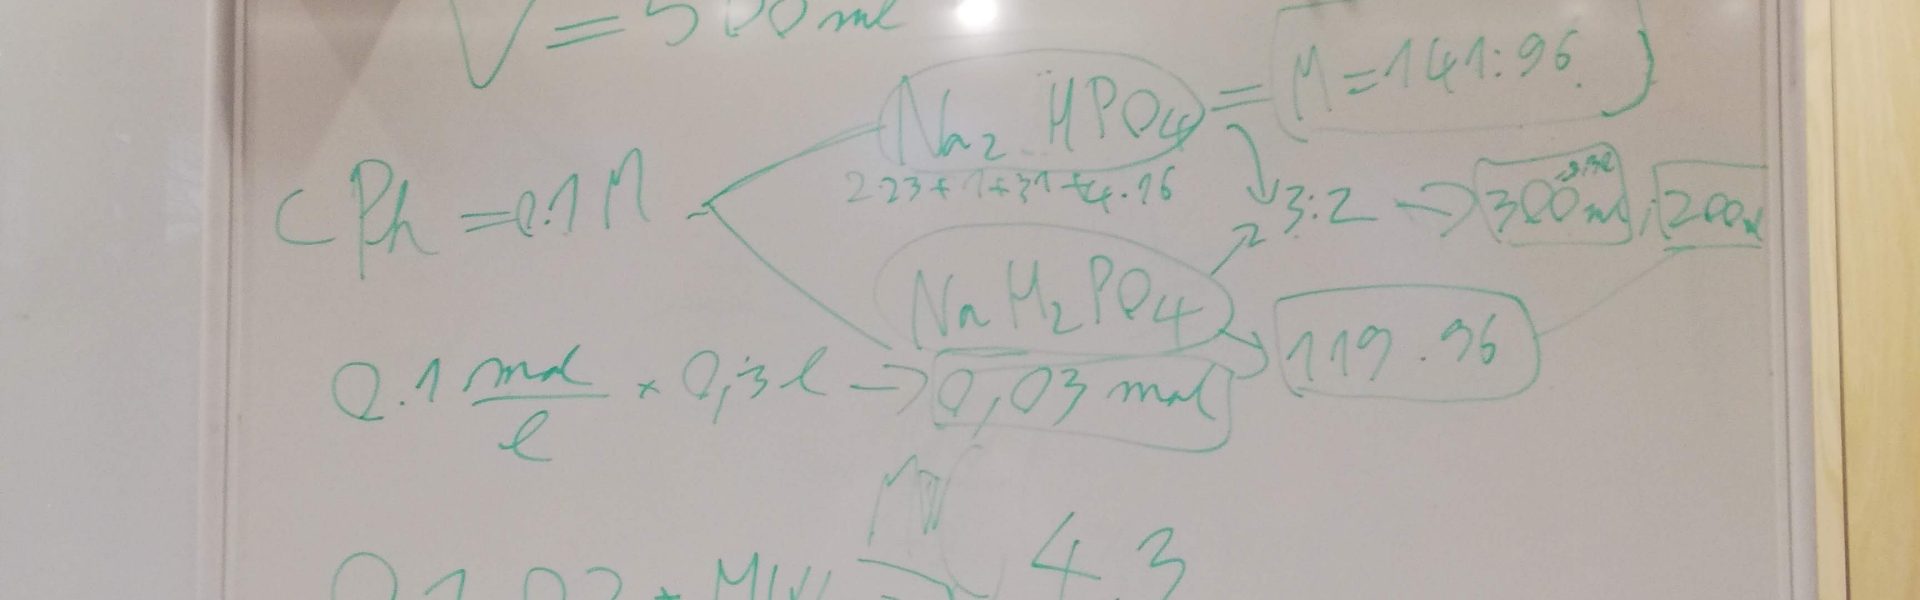 V = 500 ml
Na2 HPO4 = M = 141.96
2.23 + 1 + 31 + 4.16
c Ph = 0.1 M
3:2 → 300 ml, 200
NaH2PO4
119.96
0.1 mol/l × 0,3 l → 0,03 mol
4.3